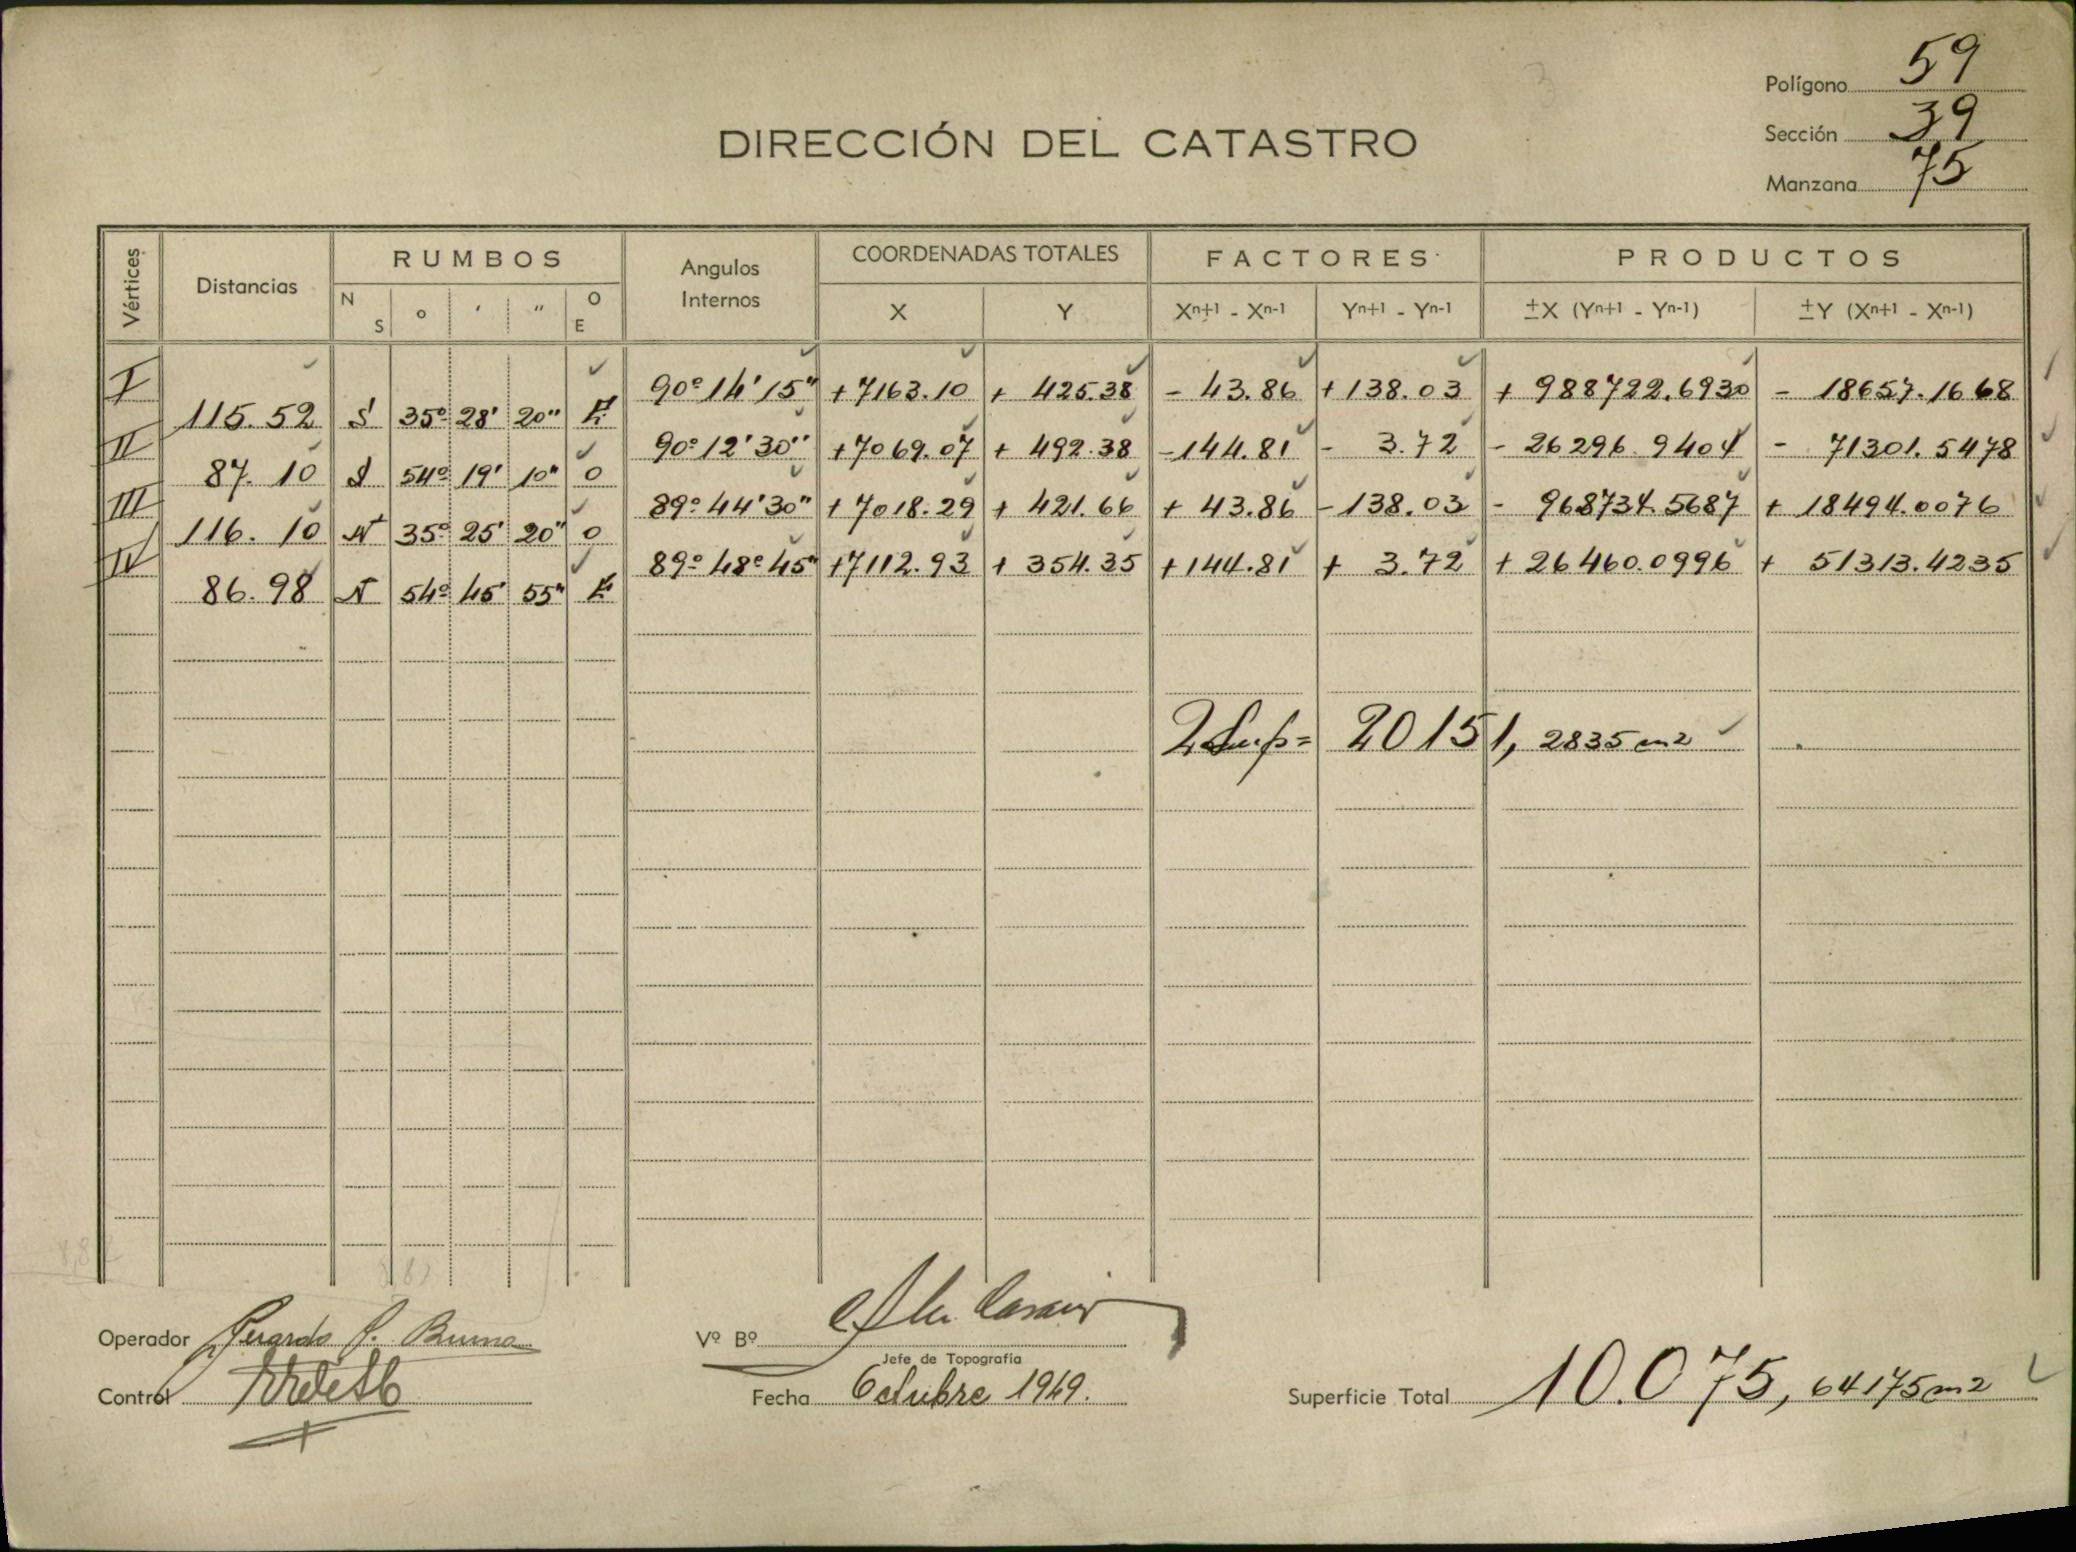 Polígono 59
DIRECCIÓN DEL CATASTRO
Sección 39
Manzana 75
Vértices Distancias RUMBOS Angulos Internos COORDENADAS TOTALES FACTORES PRODUCTOS
N S o ' " O E X Y Xn+1 - Xn-1 Yn+1 - Yn-1 ±X (Yn+1 - Yn-1) ±Y (Xn+1 - Xn-1)
I 90º 14' 15" +7163.10 + 425.38 - 43.86 +138.03 + 988722.6930 - 18657.1668
115.52 S 35º 28' 20" E
II 90º 12' 30" +7069.07 + 492.38 -144.81 - 3.72 - 26296.9404 - 71301.5478
87.10 S 54º 19' 10" O
III 89º 44' 30" +7018.29 + 421.66 + 43.86 -138.03 - 968734.5687 + 18494.0076
116.10 N 35º 25' 20" O
IV 89º 48º 45" +7112.93 + 354.35 +144.81 + 3.72 + 26460.0996 + 51313.4235
86.98 N 54º 45' 55" E
2 Sup= 20151, 2835 m2
Operador Gerardo
Vº Bº
Jefe de Topografía
Control
Fecha Octubre 1949.
Superficie Total 10.075, 64175 m2